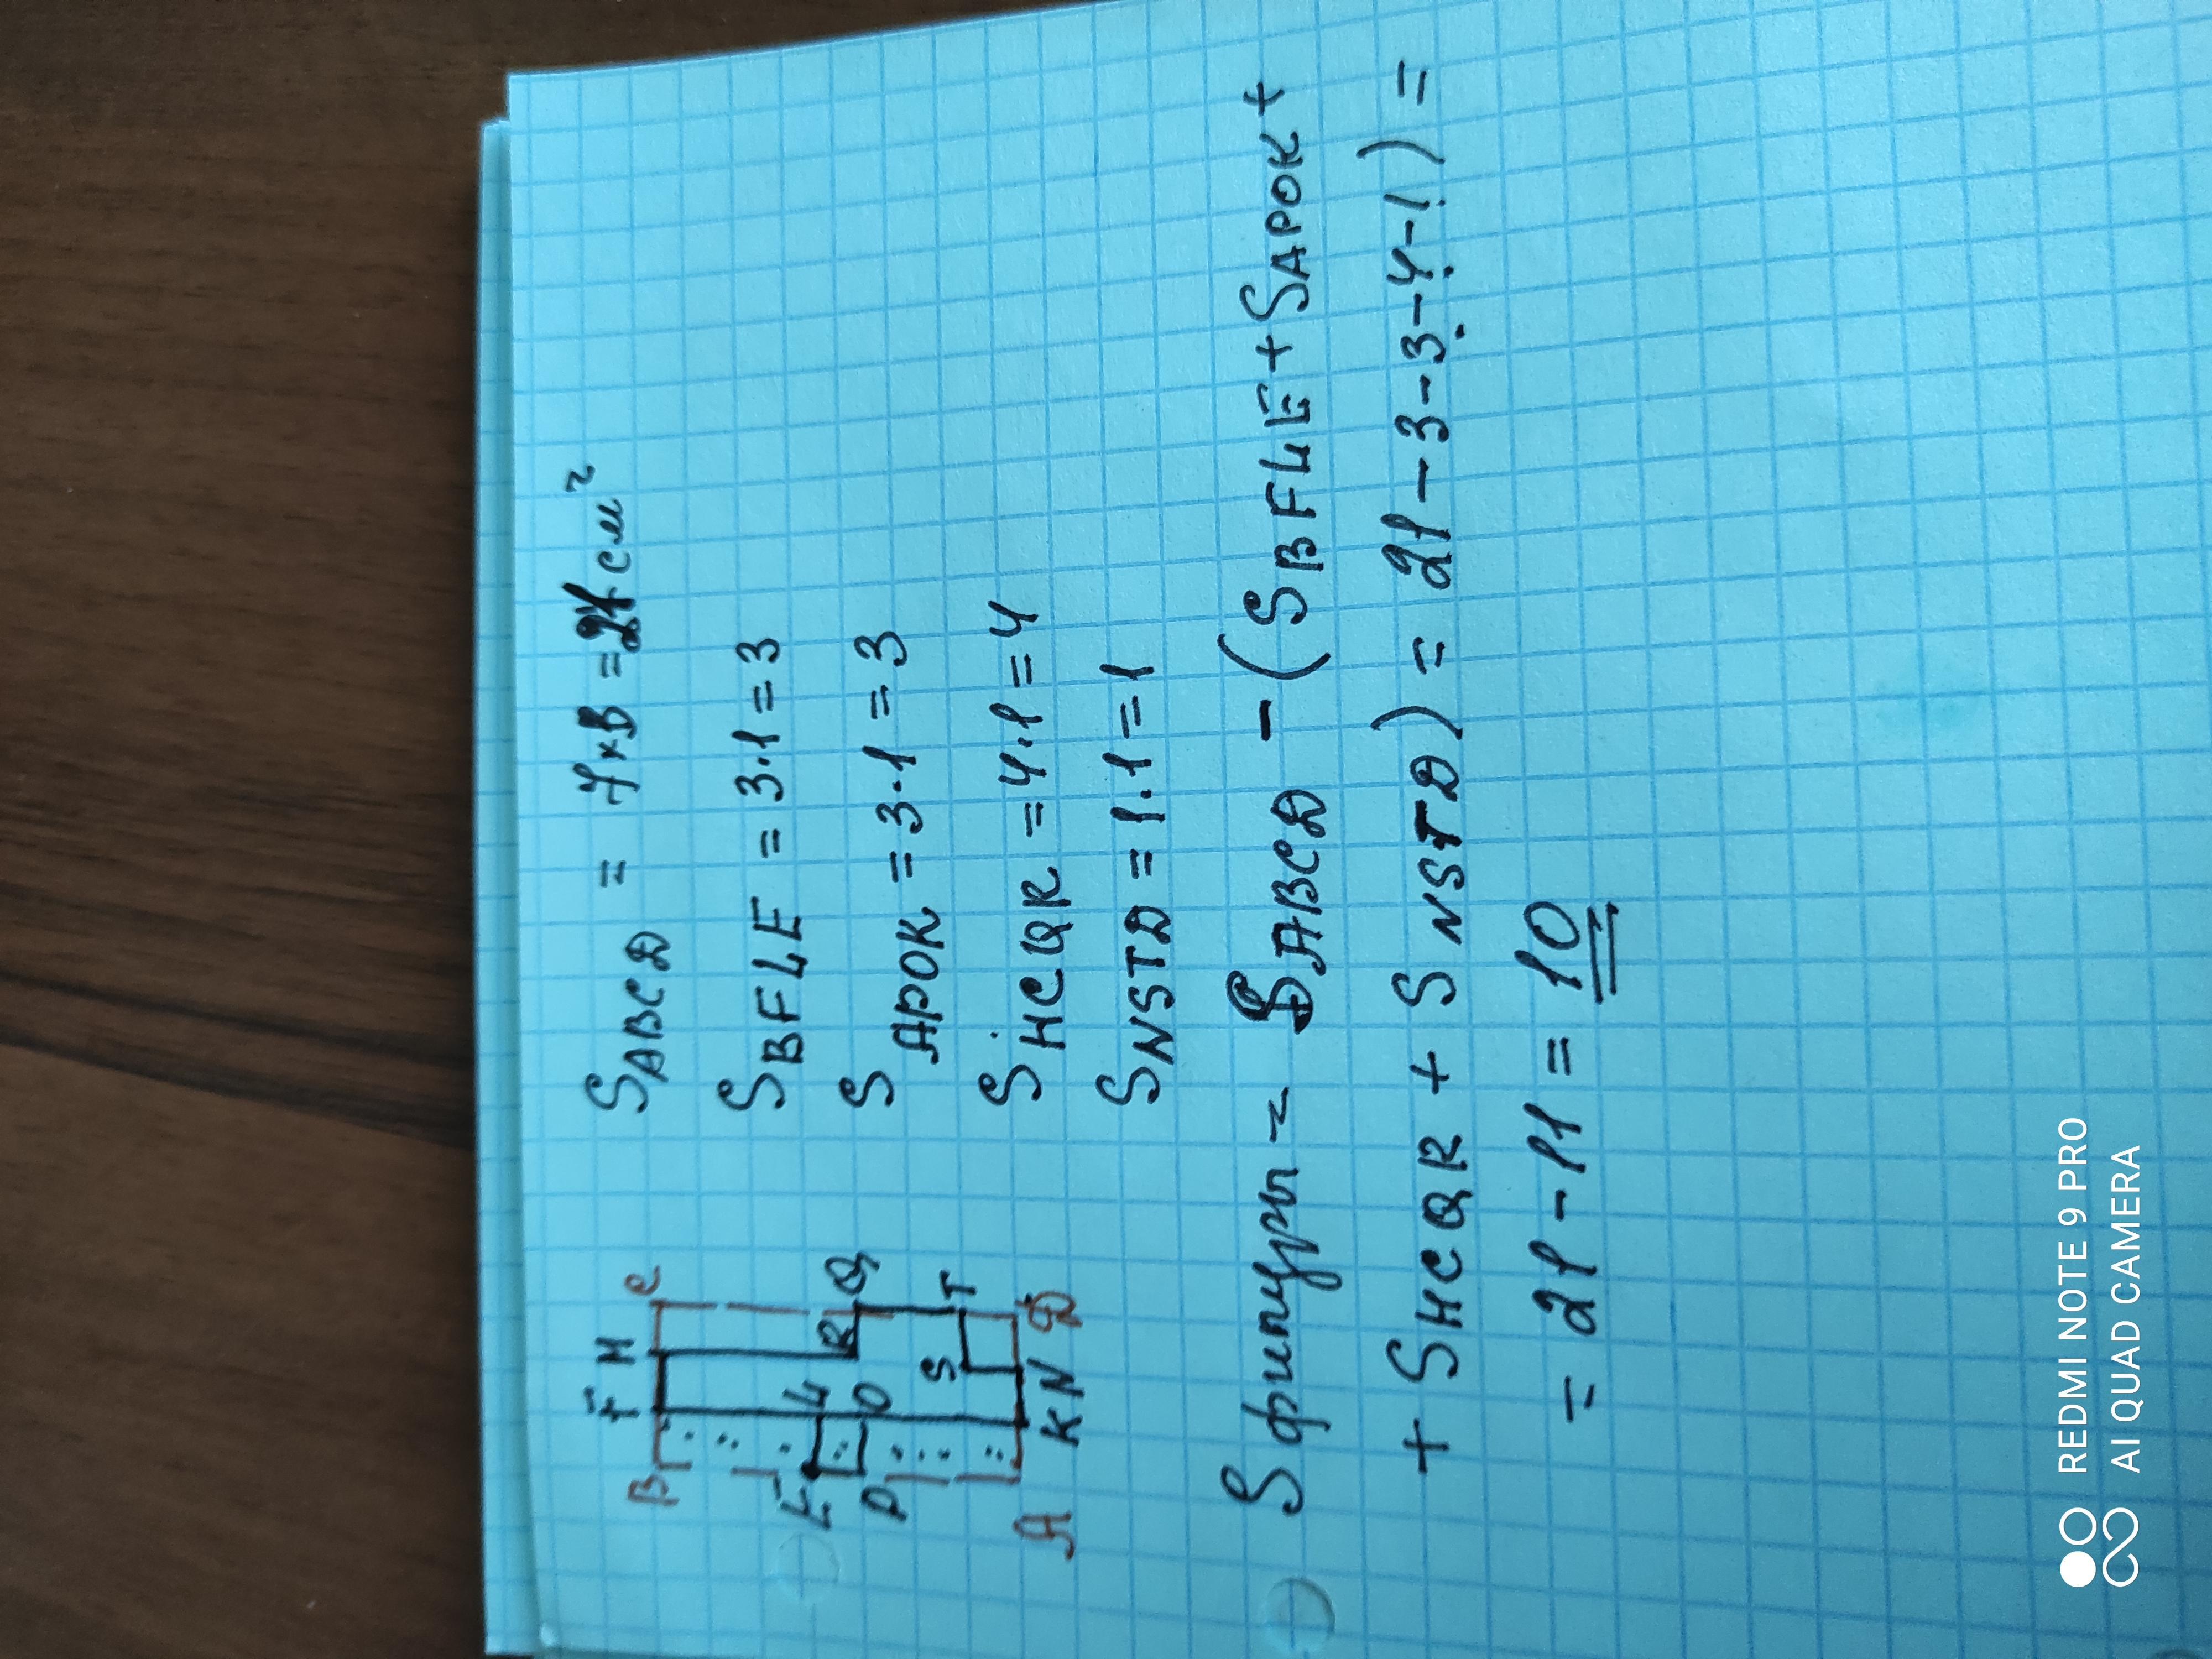 B F H C
E L R Q
P O S T
A K N D
SABCD = 7×B = 21 см²
SBFLE = 3·1 = 3
SAPOK = 3·1 = 3
SHCQR = 4·1 = 4
SNSTD = 1·1 = 1
S фигуры = SABCD - (SBFLE + SAPOK +
+ SHCQR + SNSTD) = 21 - 3 - 3 - 4 - 1) =
= 21 - 11 = 10
REDMI NOTE 9 PRO
AI QUAD CAMERA